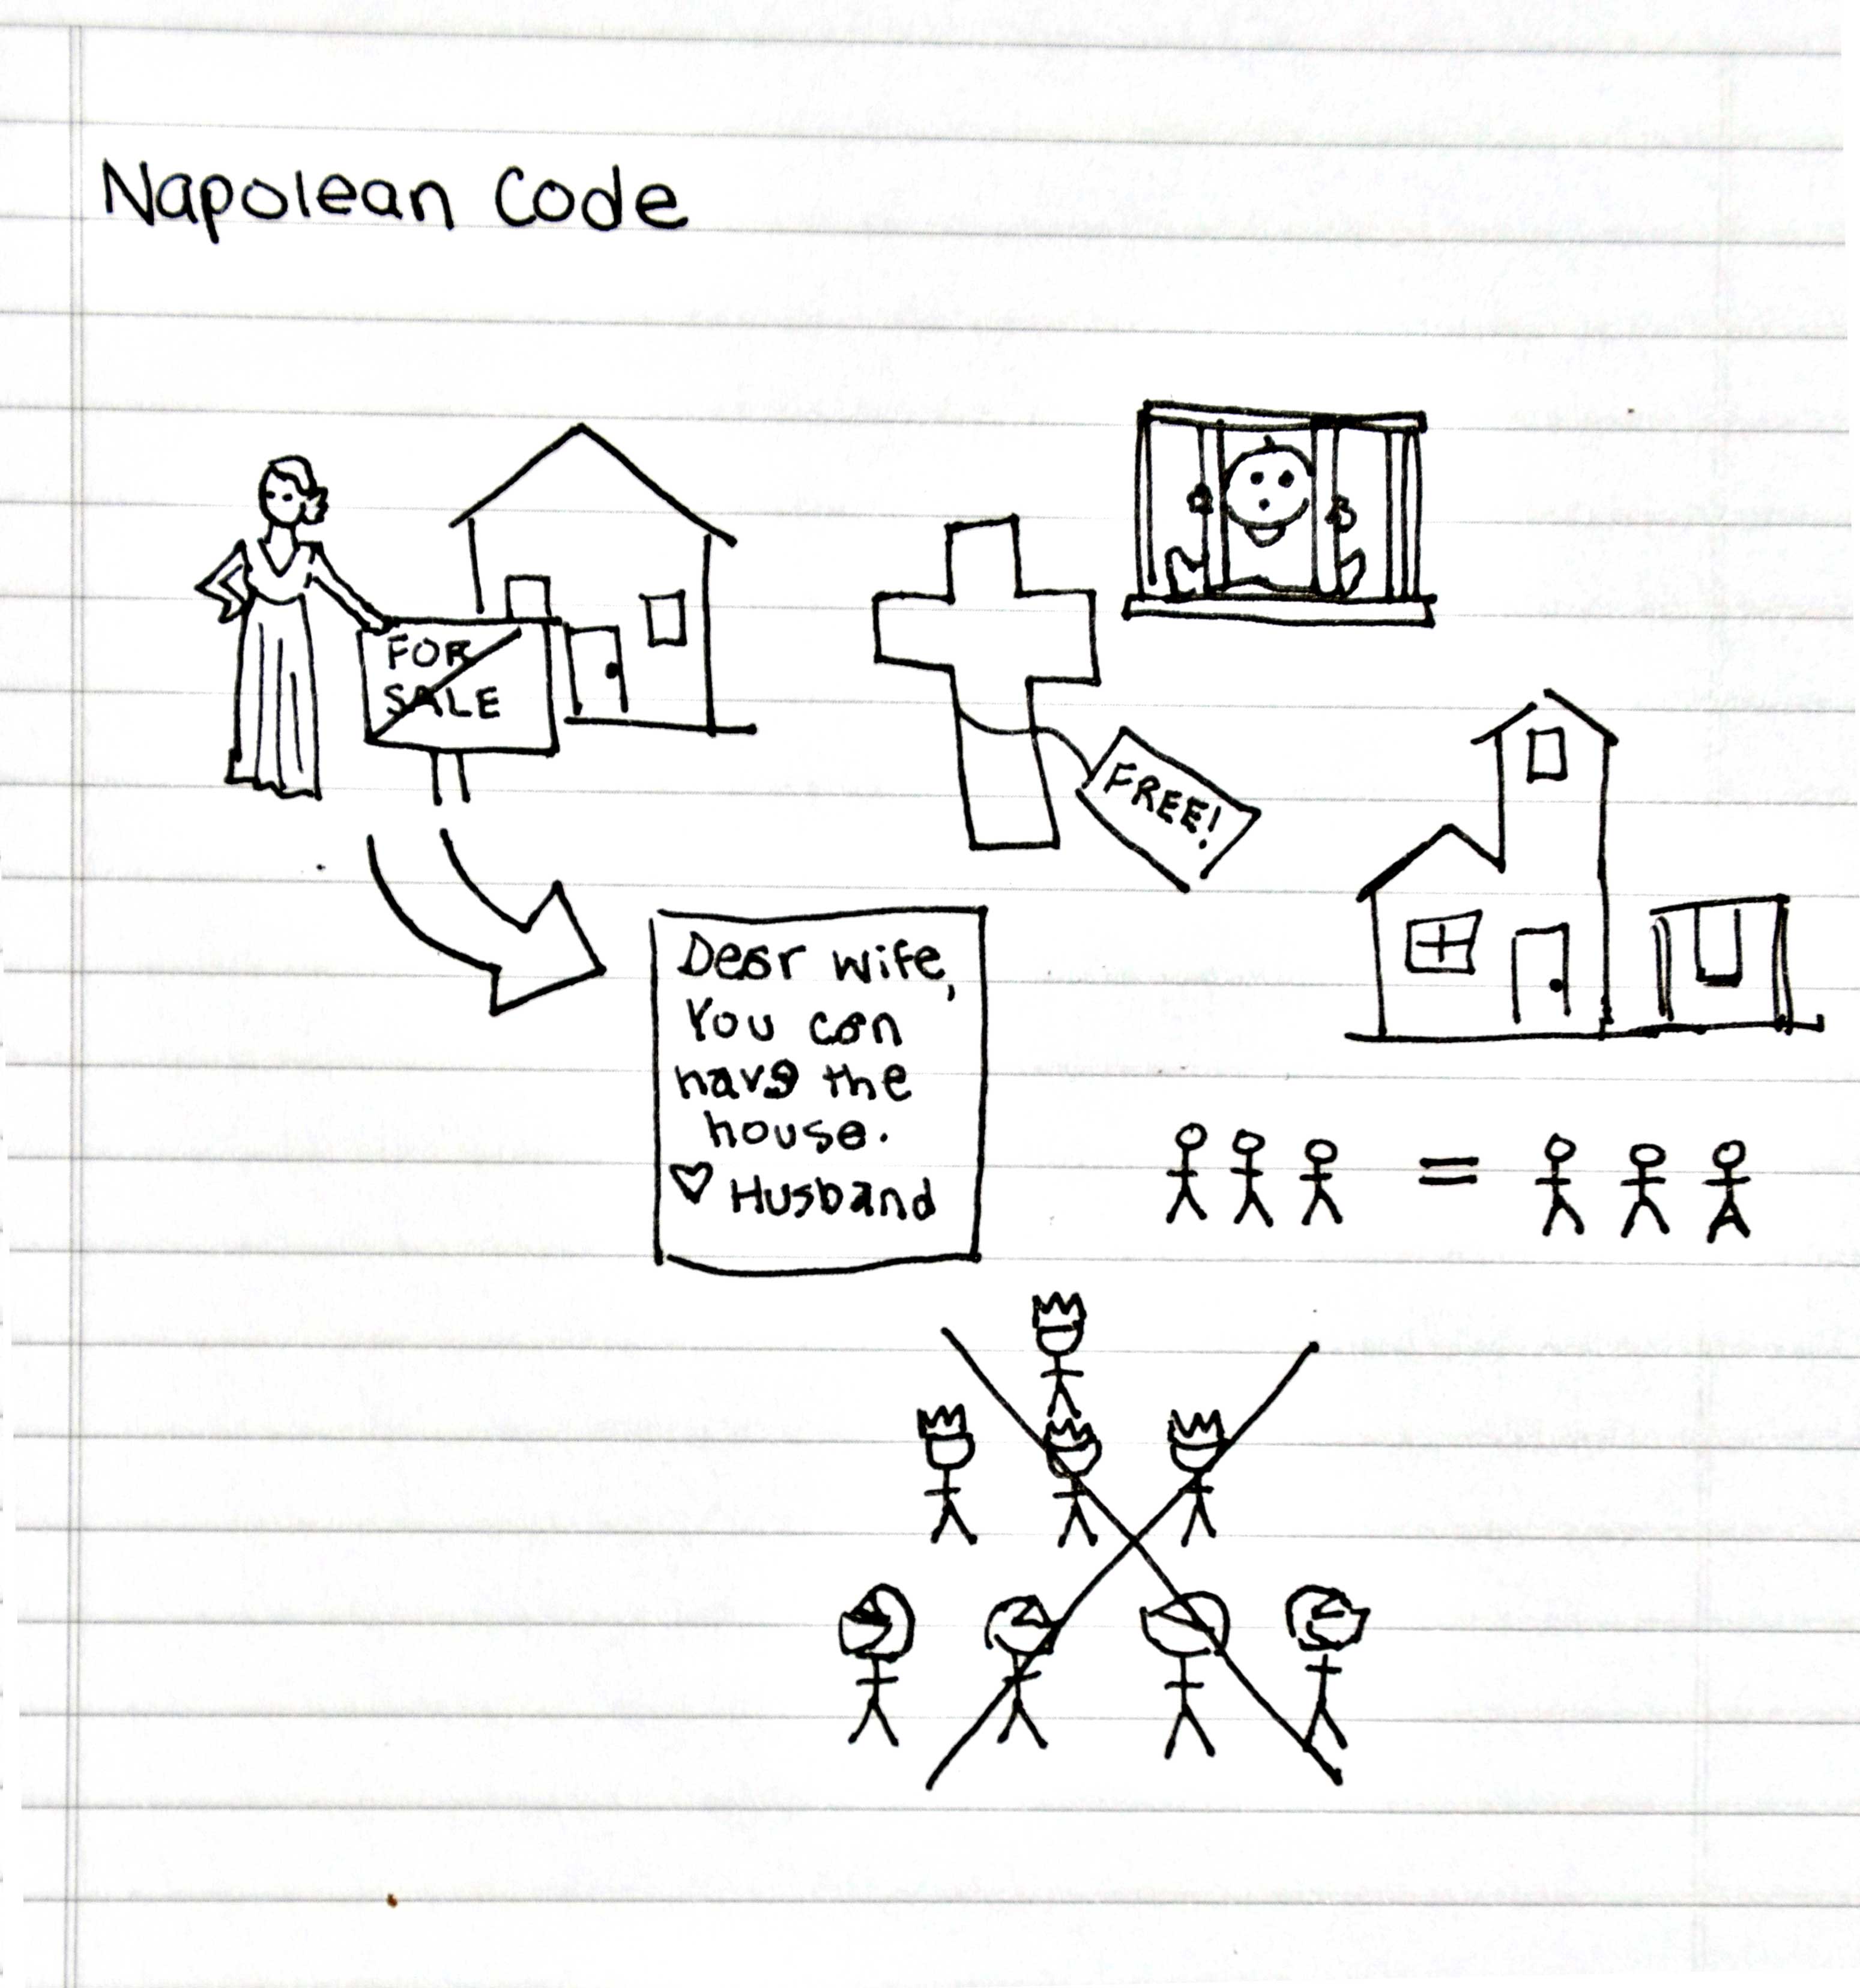 Napolean Code
FOR
SALE
FREE!
Dear wife,
You can
have the
house.
♡ Husband